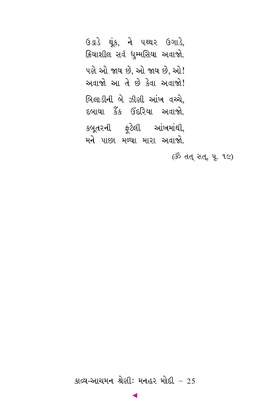 ઉડાડે થૂંક, ને પથ્થર ઉગાડે,
ક્રિયાશીલ સર્વ ધુમ્મસિયા અવાજો.
પણે ઓ જાય છે, ઓ જાય છે, ઓ!
અવાજો આ તે છે કેવા અવાજો!
બિલાડીની બે ઝીણી આંખ વચ્ચે,
દબાયા કૈંક ઉંદરિયા અવાજો.
કબૂતરની ફૂટેલી આંખમાંથી,
મને પાછા મળ્યા મારા અવાજો.
(ૐ તત્ સત્, પૃ. ૧૯)
કાવ્ય-આચમન શ્રેણી: મનહર મોદી – 25